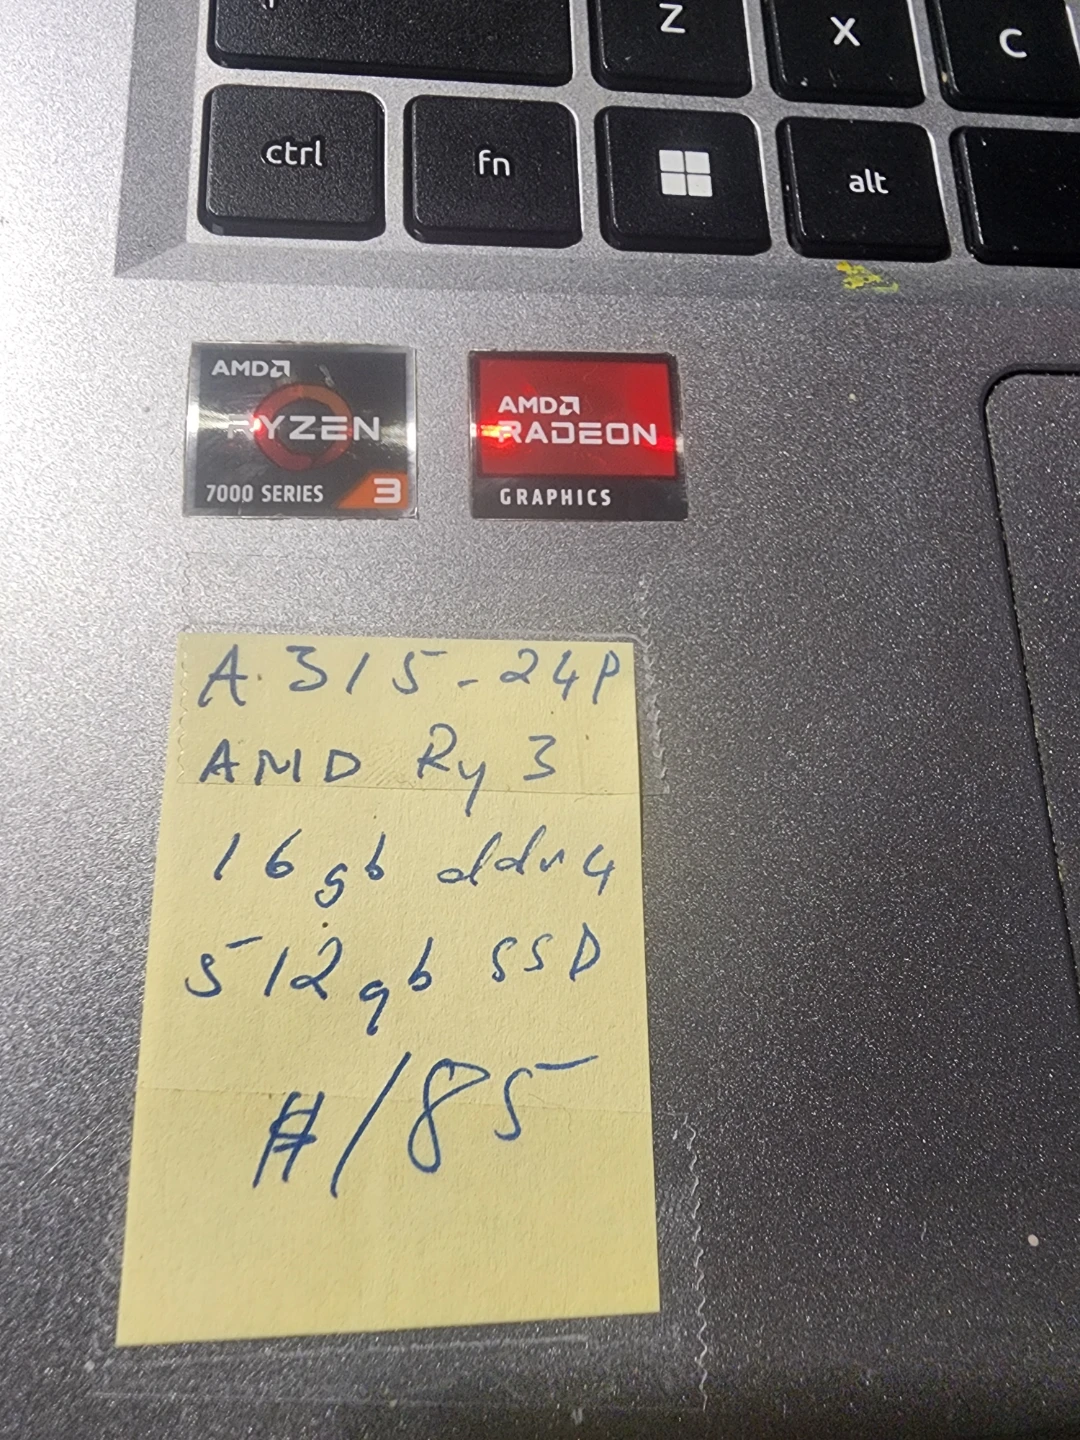 Z X C
ctrl fn alt
AMD
RYZEN
7000 SERIES 3
AMD
RADEON
GRAPHICS
A.315-24P
AMD Ry 3
16gb ddr4
512gb SSD
#185